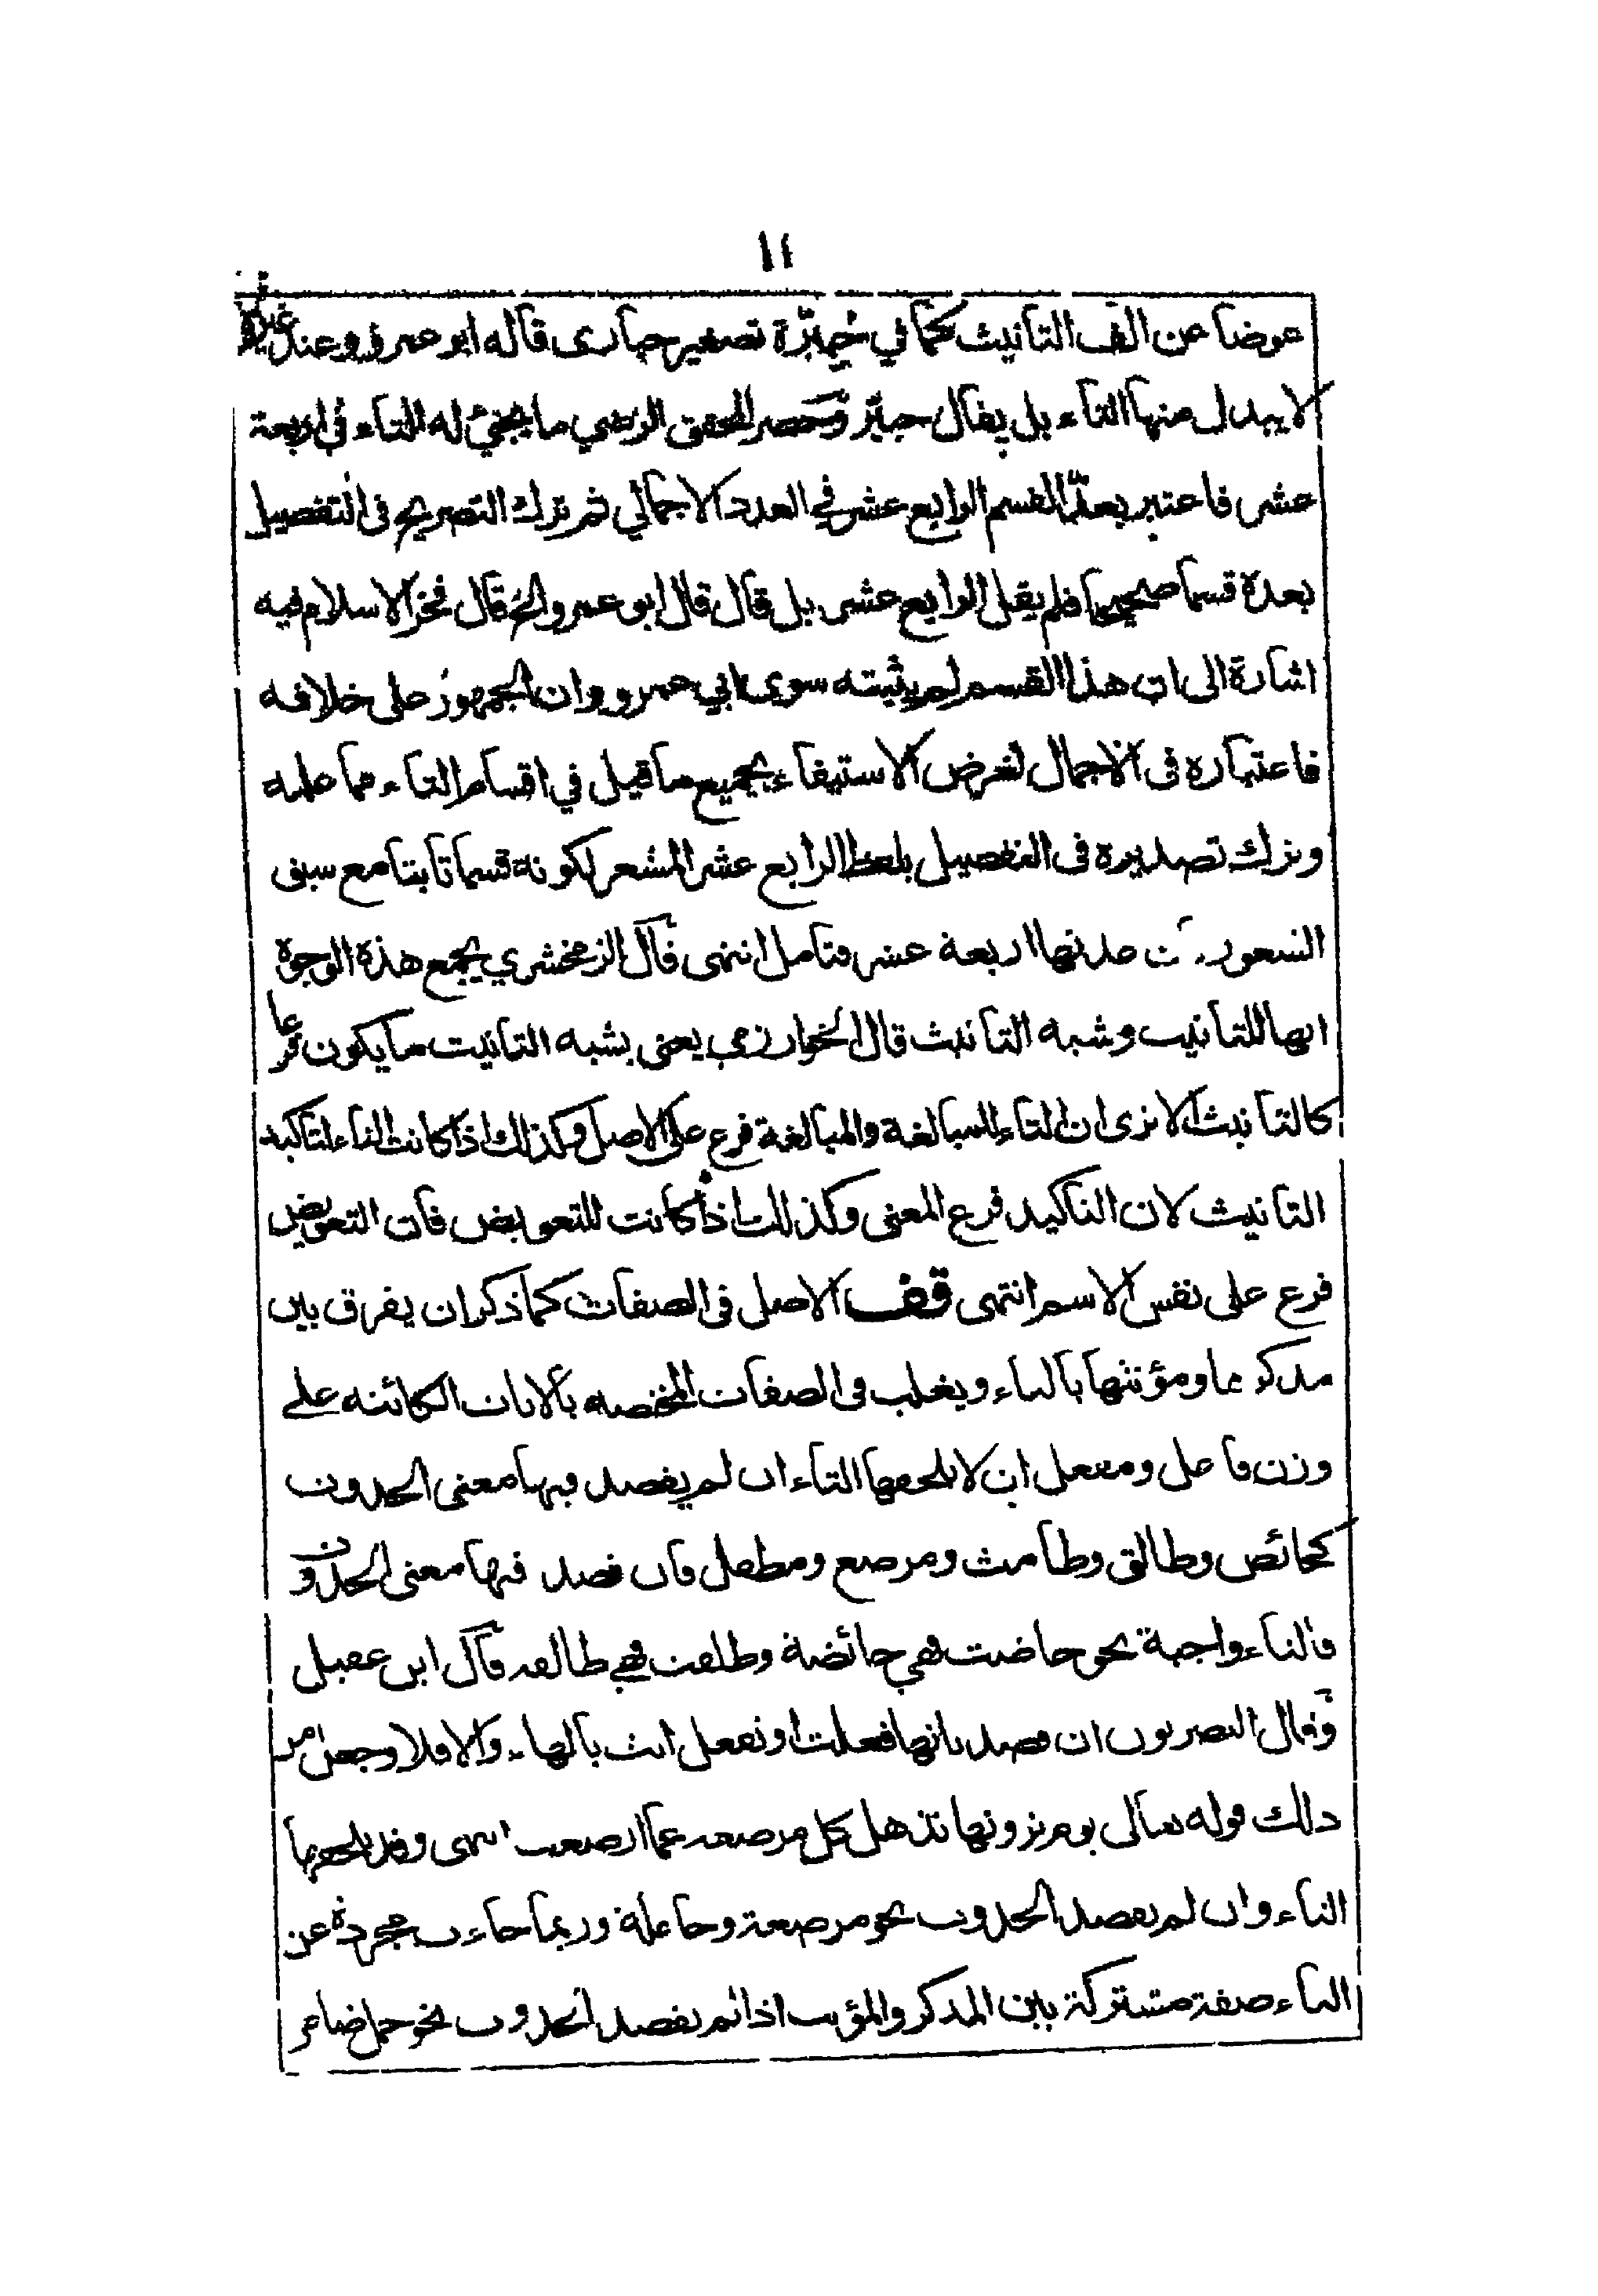 ١٤
عوضا عن الف التانيث كما في حبيّرة تصغير حبارى قاله ابو عمرو وعند غيره
لا يبدل منها التاء بل يقال حبيّر وحصر المحقق الرضي ما يجيئ له التاء في اربعة
عشر فاعتبر بعدّ القسم الرابع عشر في العدد الاجمالي ثم ترك التصريح في التفصيل
بعده قسما صحيحا فلم يقل الرابع عشر بل قال قال ابو عمرو الخ قال فخر الاسلام فيه
اشارة الى ان هذا القسم لم يثبته سوى ابي عمرو وان الجمهور على خلافه
فاعتباره في الاجمال لغرض الاستيفاء بجميع ما قيل في اقسام التاء مما علمه
وترك تصديره في التفصيل بلفظ الرابع عشر المشعر لكونه قسما ثابتا مع سبق
اربعة عشر فتامل انتهى قال الزمخشري يجمع هذه الوجوه
انها للتانيث وشبه التانيث قال الخوارزمي يعنى بشبه التانيث ما يكون فرعا
كالتانيث الا ترى ان التاء للمبالغة والمبالغة فرع على الاصل وكذلك اذا كانت التاء لتاكيد
التانيث لان التاكيد فرع المعنى وكذلك اذا كانت للتعويض فان التعويض
فرع على نفس الاسم انتهى قف الاصل في الصفات كما ذكر ان يفرق بين
مذكرها ومؤنثها بالتاء ويغلب في الصفات المختصه بالاناث الكائنه على
وزن فاعل ومفعل ان لا يلحقها التاء ان لم يقصد فيها معنى الحدوث
كحائض وطالق وطامث ومرضع ومطفل فان قصد فيها معنى الحدوث
فالتاء واجبة نحو حاضت فهي حائضة وطلقت فهي طالقه قال ابن عقيل
وقال البصريون ان قصد بانها فعلت او تفعل انث بالهاء والا فلا وجعل من
ذلك قوله تعالى يوم ترونها تذهل كل مرضعه عما ارضعت انتهى وقد يلحقها
التاء وان لم يقصد الحدوث نحو مرضعة وحاملة وربما جاءت مجردة عن
التاء صفة مشتركة بين المذكر والمؤنث اذا لم يقصد الحدوث نحو جمل ضامر